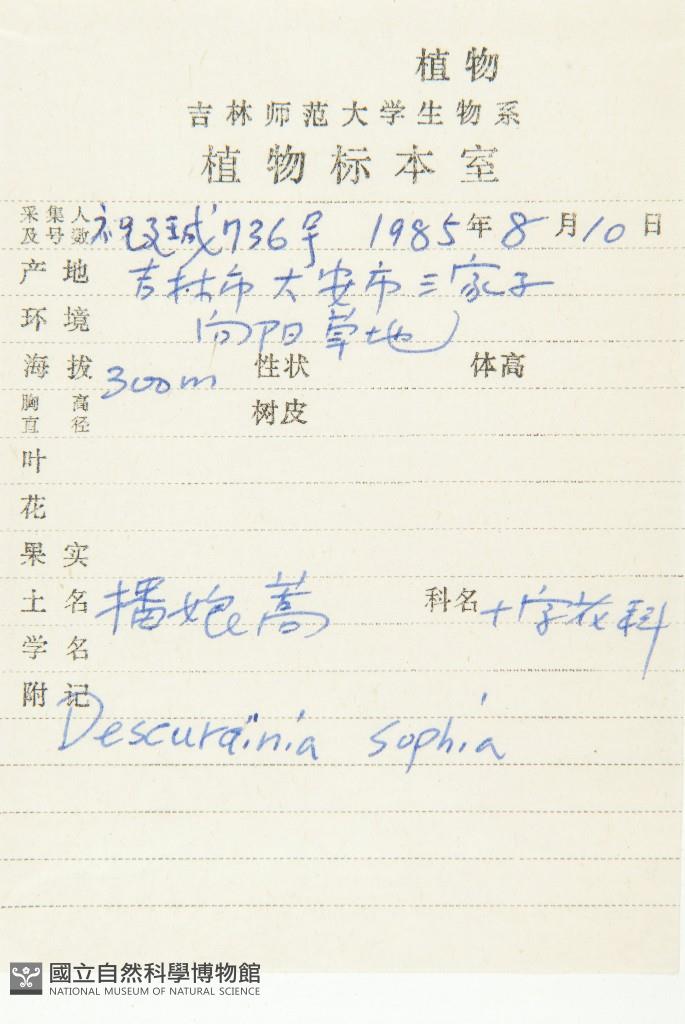 植物
吉林师范大学生物系
植物标本室
采集人及号数 祝廷成 736号 1985年8月10日
产地 吉林市大安市三家子
环境 向阳草地
海拔 300m 性状 体高
胸高直径 树皮
叶
花
果实
土名 播娘蒿 科名 十字花科
学名
附记
Descurainia sophia
國立自然科學博物館
NATIONAL MUSEUM OF NATURAL SCIENCE